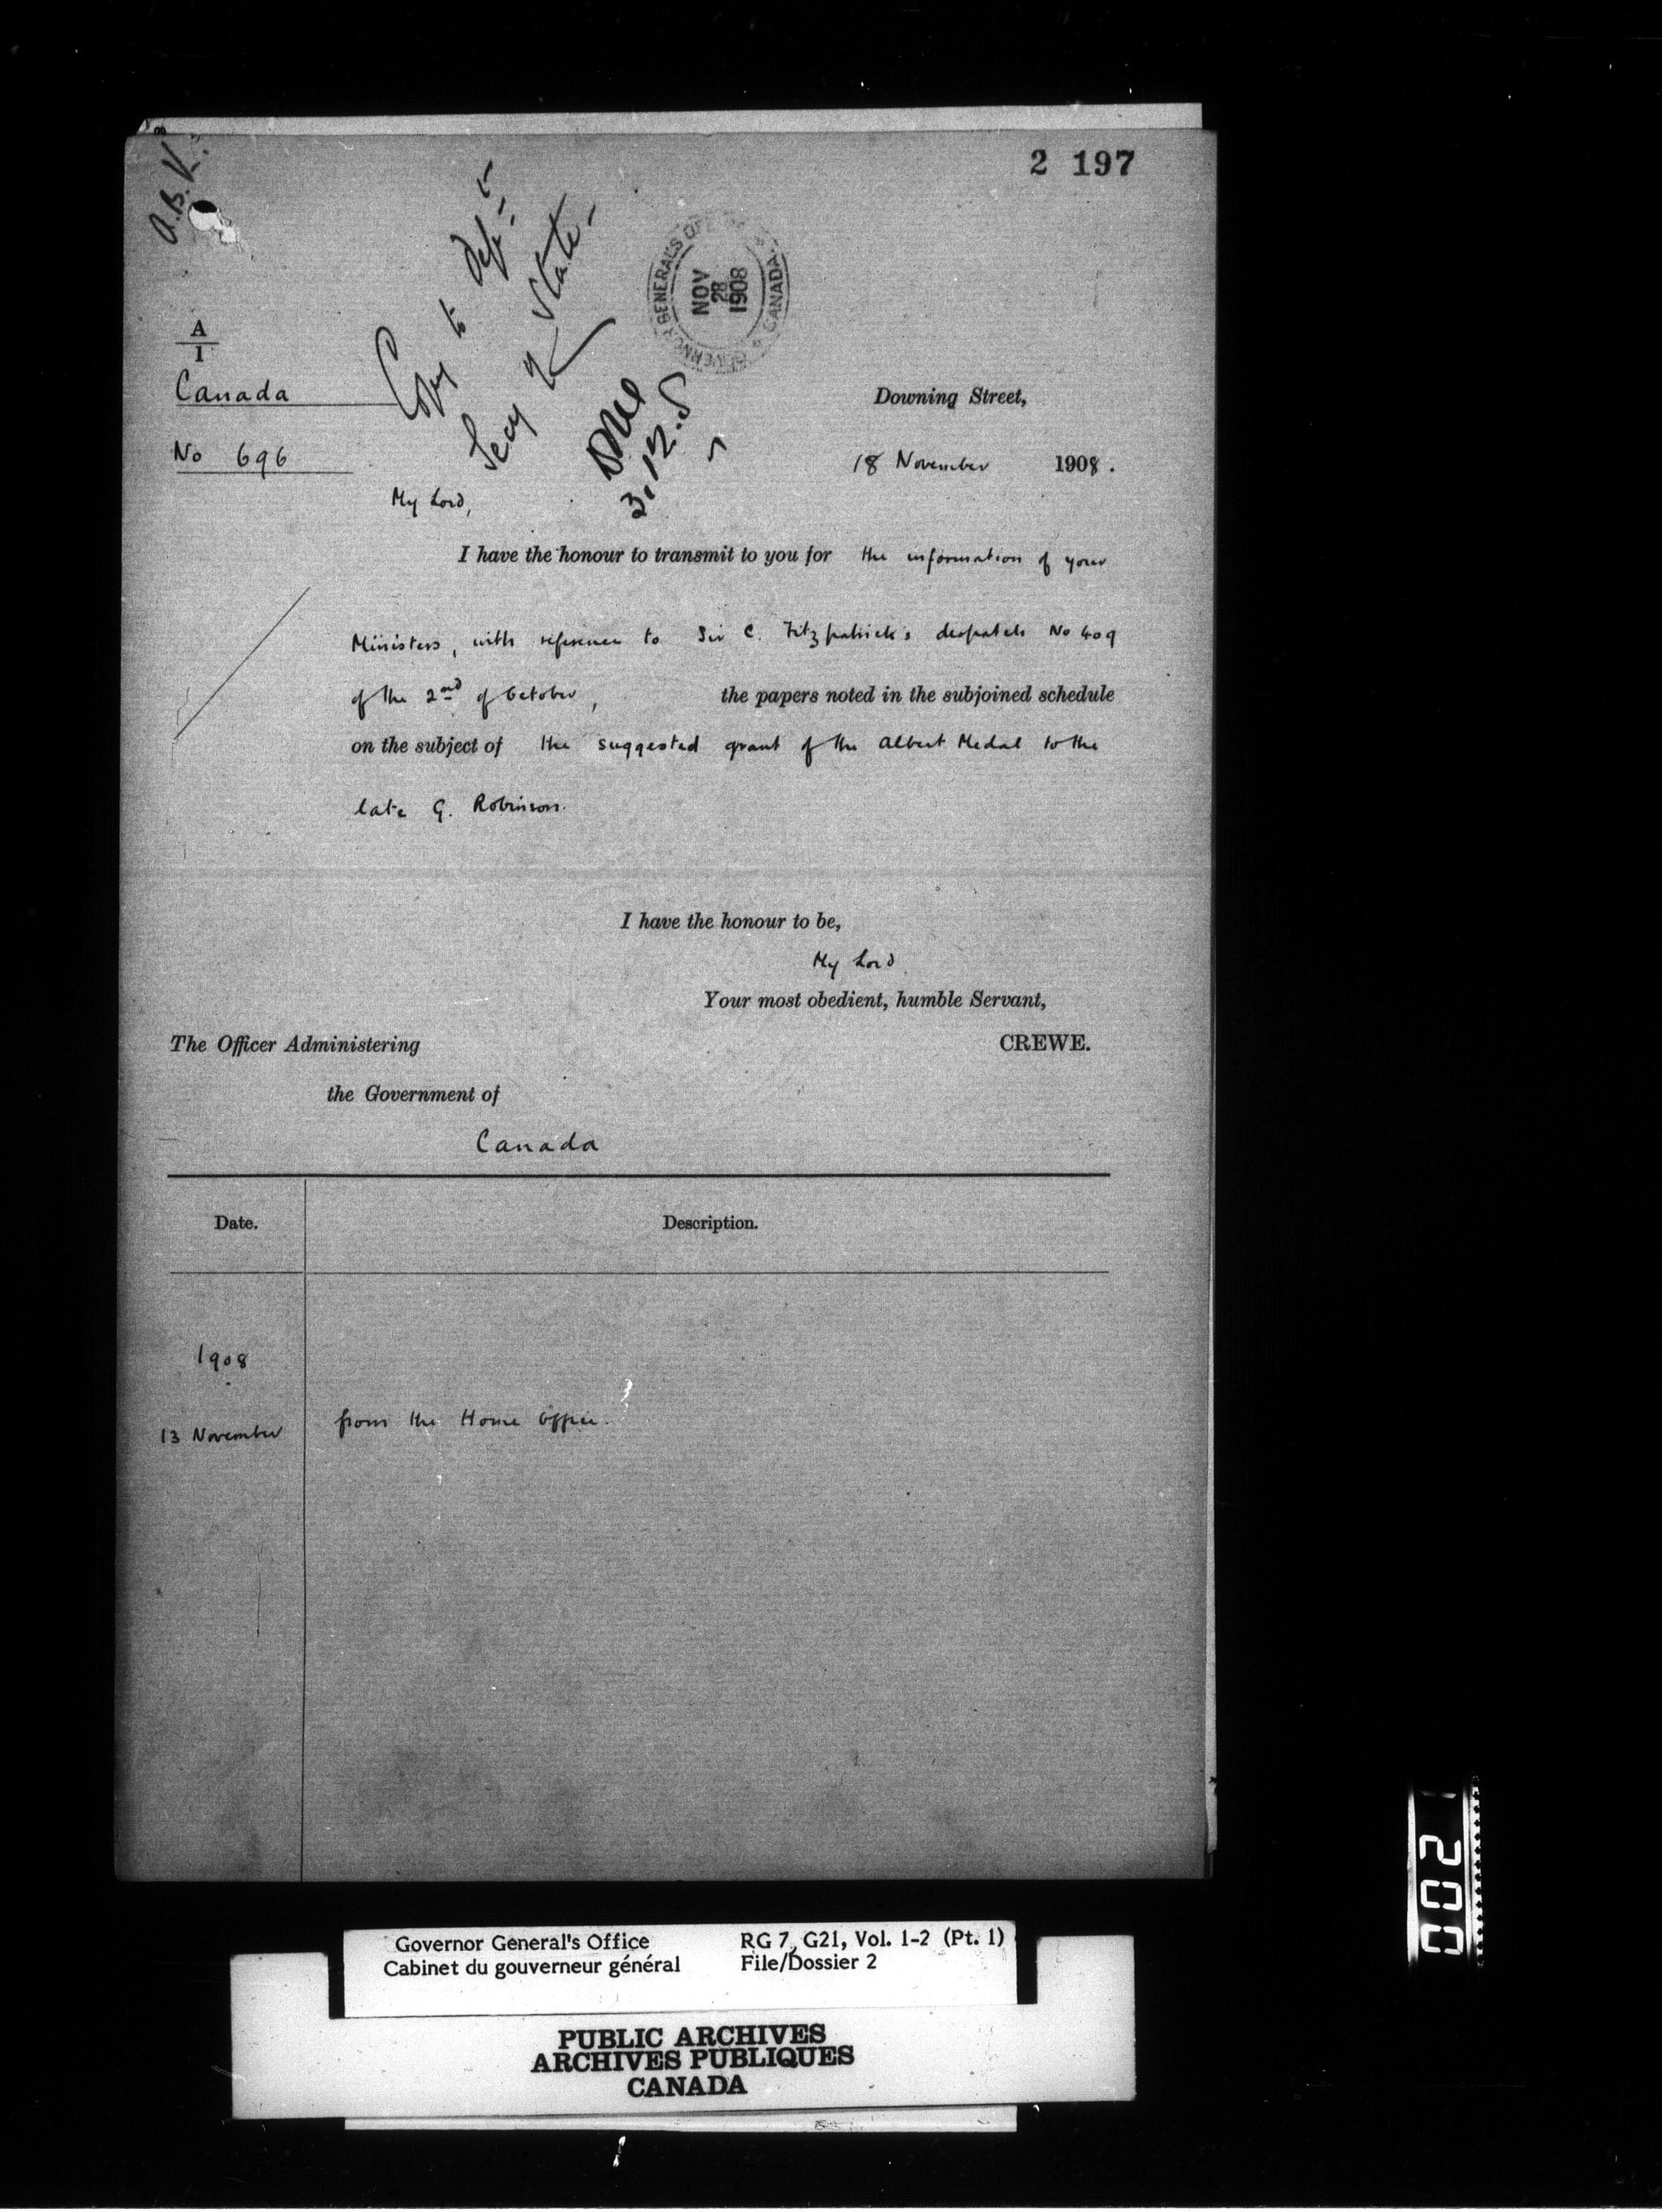 2 197
A.B.K.
Copy to
Secy of State
GOVERNOR GENERAL'S
NOV
28
1908
CANADA
3.12.8
A
1
Canada
Downing Street,
No 696
18 November 1908.
My Lord,
I have the honour to transmit to you for the information of your
Ministers, with reference to Sir C. Fitzpatrick's despatch No 409
of the 2nd of October, the papers noted in the subjoined schedule
on the subject of the suggested grant of the Albert Medal to the
late G. Robinson.
I have the honour to be,
My Lord
Your most obedient, humble Servant,
The Officer Administering CREWE.
the Government of
Canada
Date. Description.
1908
13 November from the Home Office.
Governor General's Office RG 7, G21, Vol. 1-2 (Pt. 1)
Cabinet du gouverneur général File/Dossier 2
PUBLIC ARCHIVES
ARCHIVES PUBLIQUES
CANADA
002